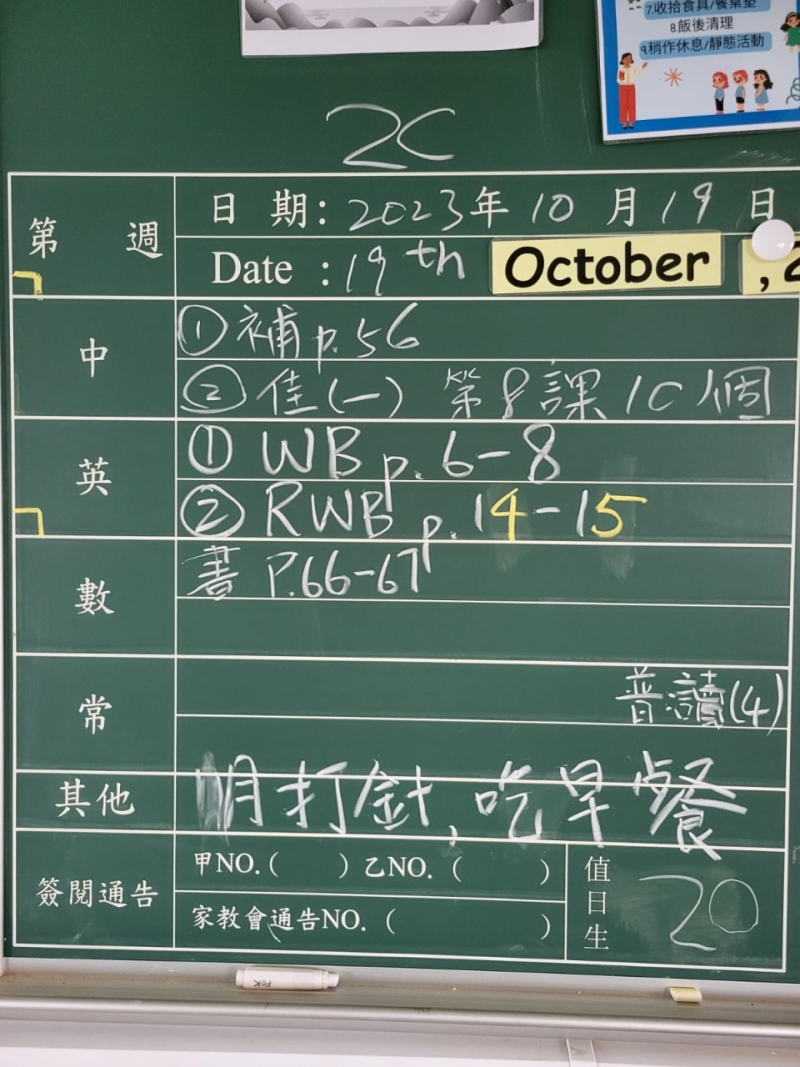 7.收拾食具/餐桌墊
8.飯後清理
9.稍作休息/靜態活動
2C
第 週
日 期: 2023年 10 月 19 日
Date : 19th October , 2
中
① 補 p.56
② 佳(一) 第8課 10個
英
① WB p. 6-8
② RWB p. 14-15
數
書 P.66-67
常
普讀(4)
其他
明打針, 吃早餐
簽閱通告
甲NO.( ) 乙NO. ( )
家教會通告NO. ( )
值日生
20